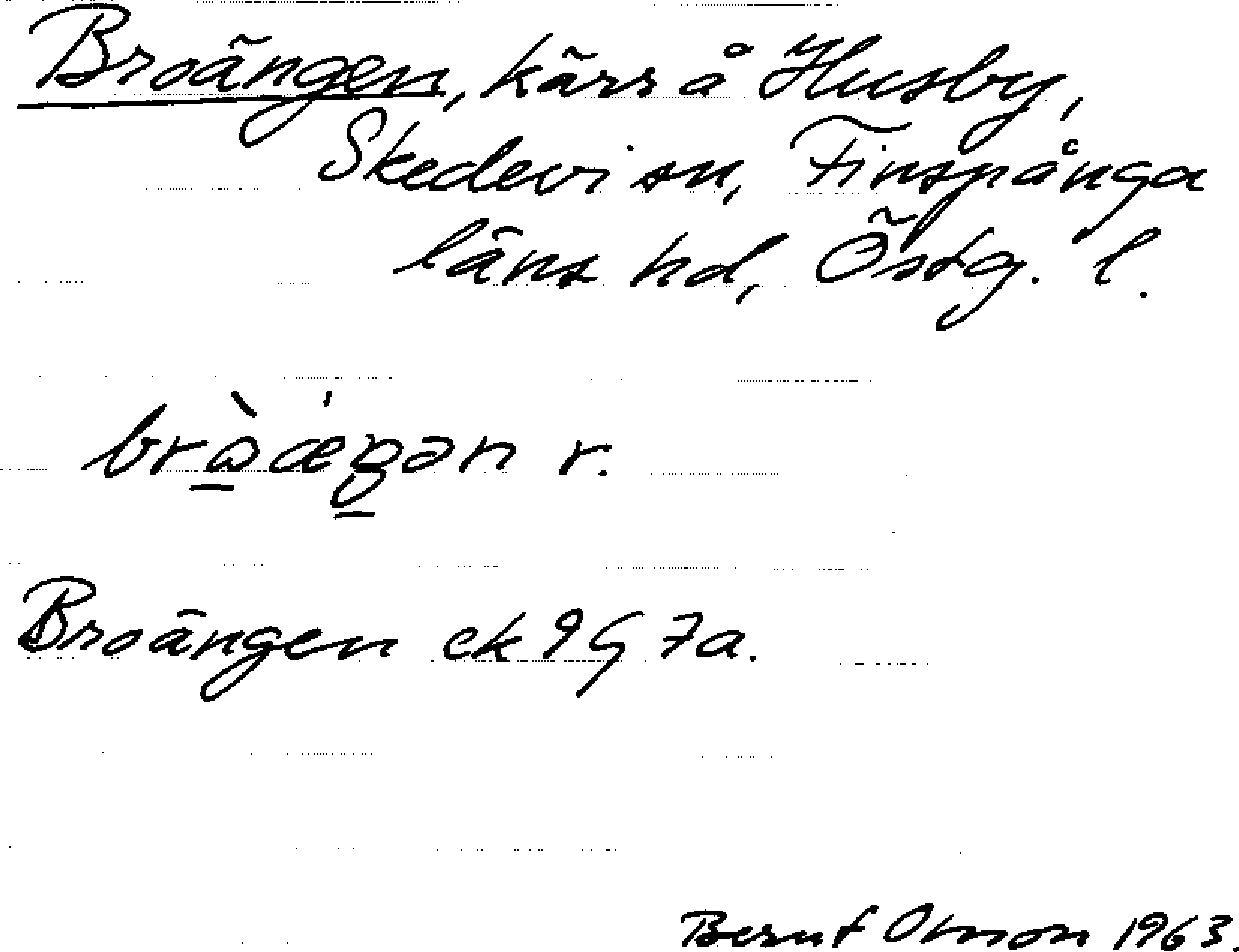 Broängen, kärr å Husby,
Skedevi sn, Finspånga
läns hd, Östg. l.
r.
Broängen ek 9G 7a.
Bernt Olsson 1963.